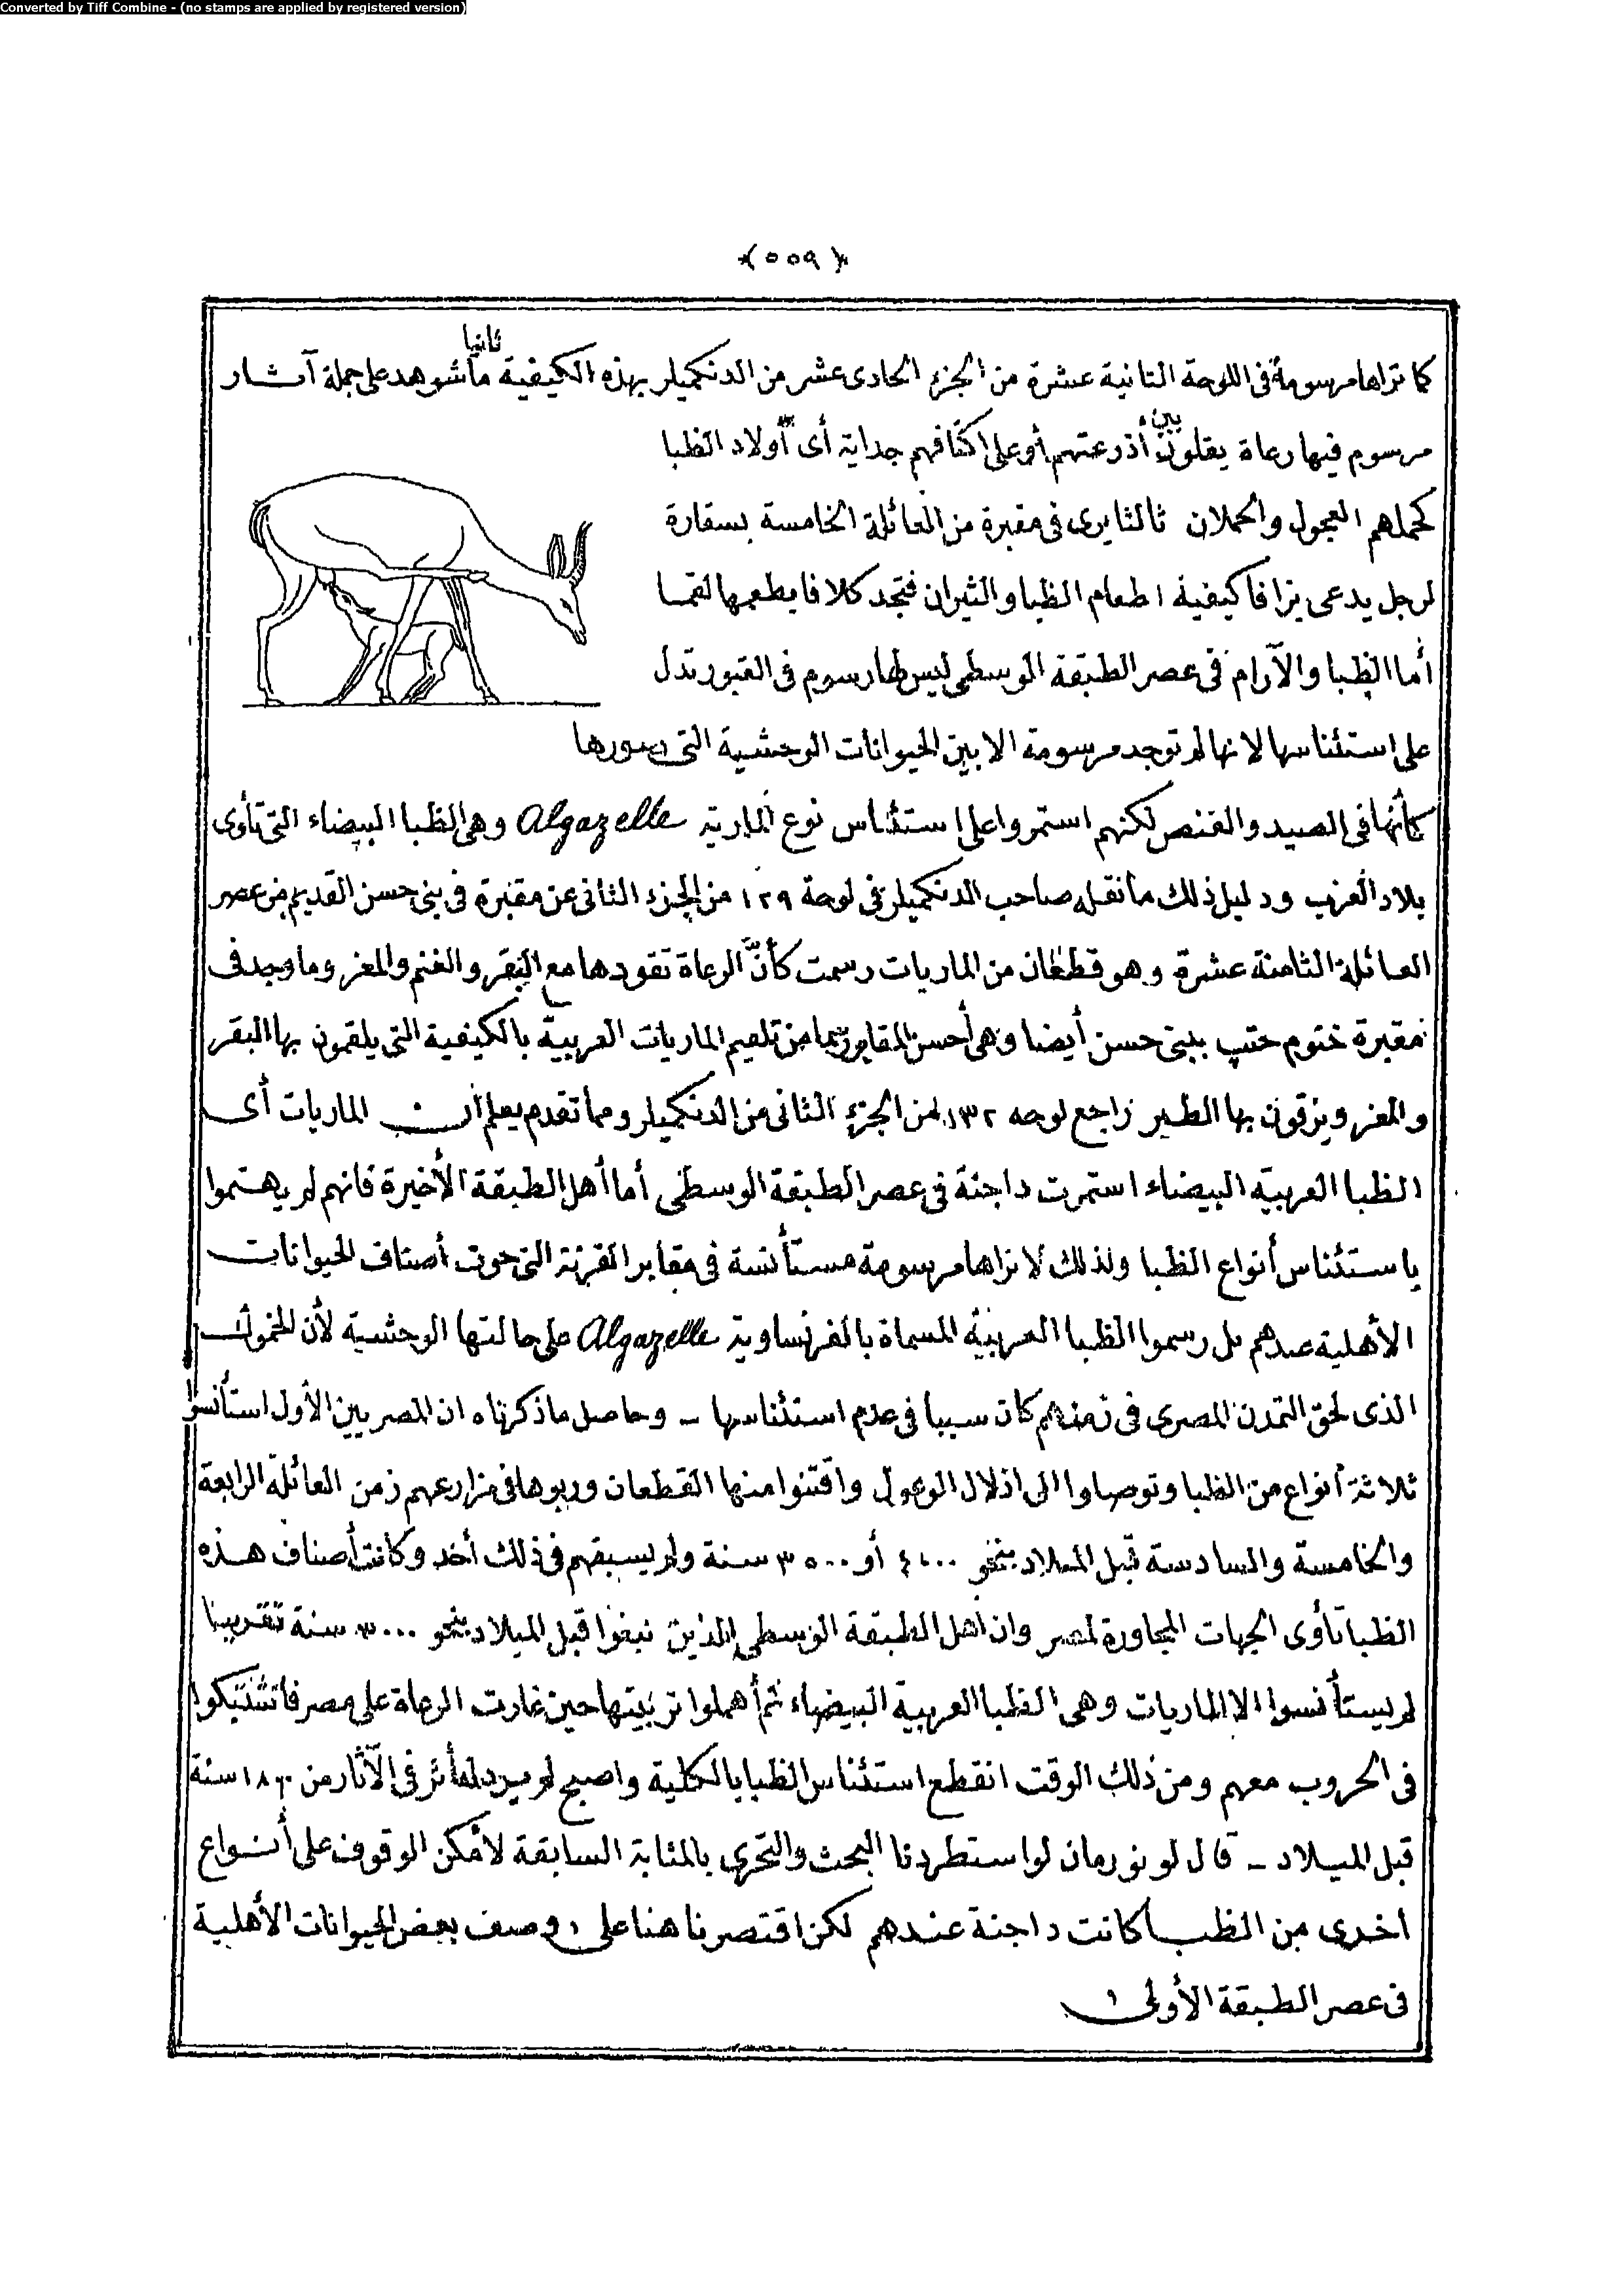 Converted by Tiff Combine - (no stamps are applied by registered version)
﴿٥٥٩﴾
كما تراها مرسومة فى اللوحة الثانية عشرة من الجزء الحادى عشر من الدنكميلر بهذه الكيفية ثانيا ما شوهد على جملة آثار
مرسوم فيها رعاة يقلون بين أذرعتهم أو على اكتافهم جداية أى أولاد الظبا
كحملهم العجول والحملان ثالثا يرى فى مقبرة من العائلة الخامسة بسقارة
لرجل يدعى يزافا كيفية اطعام الظبا والثيران فتجد كلافا يطعمها لقما
أما الظبا والآرام فى عصر الطبقة الوسطى ليس لها رسوم فى القبور تدل
على استئناسها لانها لم توجد مرسومة الا بين الحيوانات الوحشية التى صورها
كأنها فى الصيد والقنص لكنهم استمروا على استئناس نوع المارية Algazelle وهى الظبا البيضاء التى تأوى
بلاد العرب ودليل ذلك ما نقله صاحب الدنكميلر فى لوحة ١٢٩ من الجزء الثانى عن مقبرة فى بنى حسن القديم من عصر
العائلة الثامنة عشرة وهو قطعان من الماريات رسمت كأنّ الرعاة تقودها مع البقر والغنم والمعز وما وجد فى
مقبرة ختوم حتب ببنى حسن أيضا وهى أحسن المقابر رسما من تلقيم الماريات العربية بالكيفية التى يلقمون بها البقر
والمعز ويزقون بها الطير راجع لوحه ١٣٢ من الجزء الثانى من الدنكميلر ومما تقدم يعلم أن الماريات أى
الظبا العربية البيضاء استمرت داجنة فى عصر الطبقة الوسطى أما أهل الطبقة الأخيرة فانهم لم يهتموا
باستئناس أنواع الظبا ولذلك لا نراها مرسومة مستأنسة فى مقابر القرنة التى حوت أصناف الحيوانات
الأهلية عندهم بل رسموا الظبا العربية المسماة بالفرنساوية Algazelle على حالتها الوحشية لأن الخمول
الذى لحق التمدن المصرى فى زمنهم كان سببا فى عدم استئناسها - وحاصل ما ذكرناه ان المصريين الأول استأنسوا
ثلاثة أنواع من الظبا وتوصلوا الى اذلال الوعول واقتنوا منها القطعان وربوها فى مزارعهم زمن العائلة الرابعة
والخامسة والسادسة قبل الميلاد بنحو ٤٠٠٠ أو ٣٥٠٠ سنة ولم يسبقهم فى ذلك أحد وكانت أصناف هذه
الظبا تأوى الجهات المجاورة لمصر وان أهل الطبقة الوسطى الذين نبغوا قبل الميلاد بنحو ٣٠٠٠ سنة تقريبا
لم يستأنسوا الا الماريات وهى الظبا العربية البيضاء ثم أهملوا تربيتها حين غارت الرعاة على مصر فاشتبكوا
فى الحروب معهم ومن ذلك الوقت انقطع استئناس الظبا بالكلية واصبح لم ير له أثر فى الآثار من ١٨٠٠ سنة
قبل الميلاد - قال لونورمان لو استطردنا البحث والتحرى بالمثابة السابقة لأمكن الوقوف على أنواع
اخرى من الظبا كانت داجنة عندهم لكن اقتصرنا هنا على وصف بعض الحيوانات الأهلية
فى عصر الطبقة الأولى